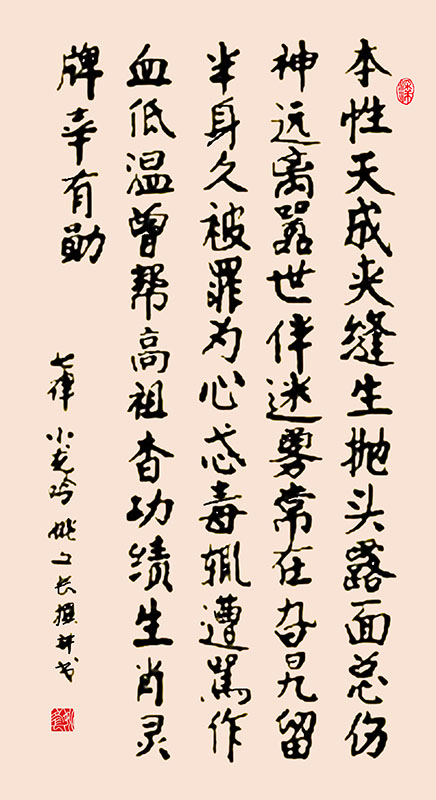 本性天成夹缝生抛头露面总伤
神远离嚣世伴迷雾常在旮旯留
半身久被罪为心忒毒辄遭骂作
血低温曾帮高祖杳功绩生肖灵
牌幸有勋
七律 小龙吟 姚文长撰并书